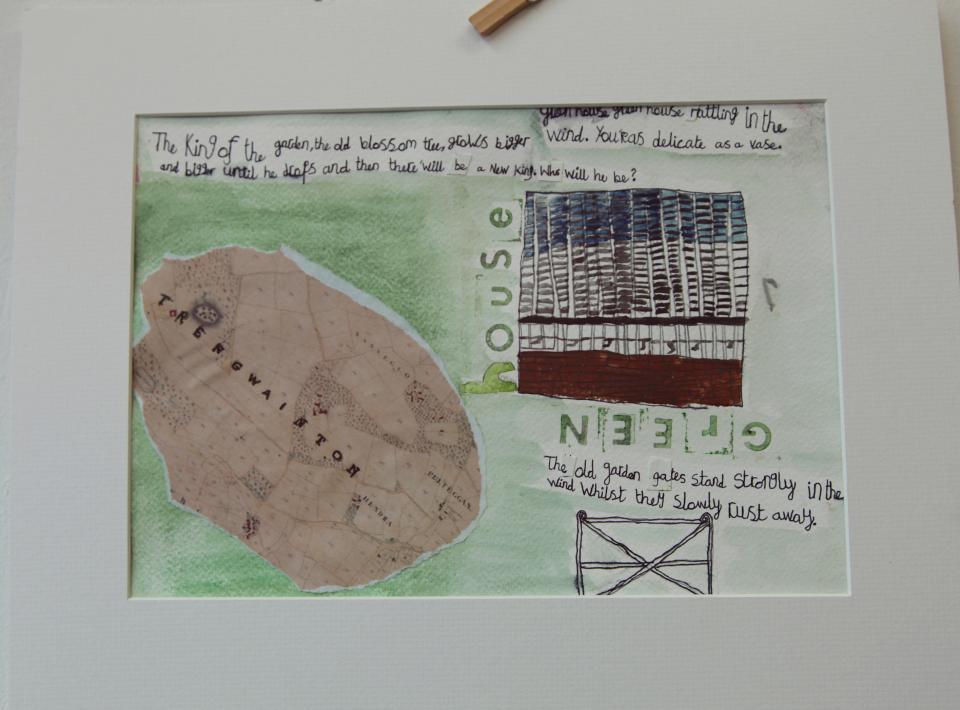 green house green house rattling in the
wind. You are as delicate as a vase.
The King of the garden, the old blossom tree, grows bigger
and bigger until he drops and then there will be a new King. Who will he be?
house
GREEN
TRENGWAINTON
HENDRA
The old garden gates stand strongly in the
wind whilst they slowly rust away.